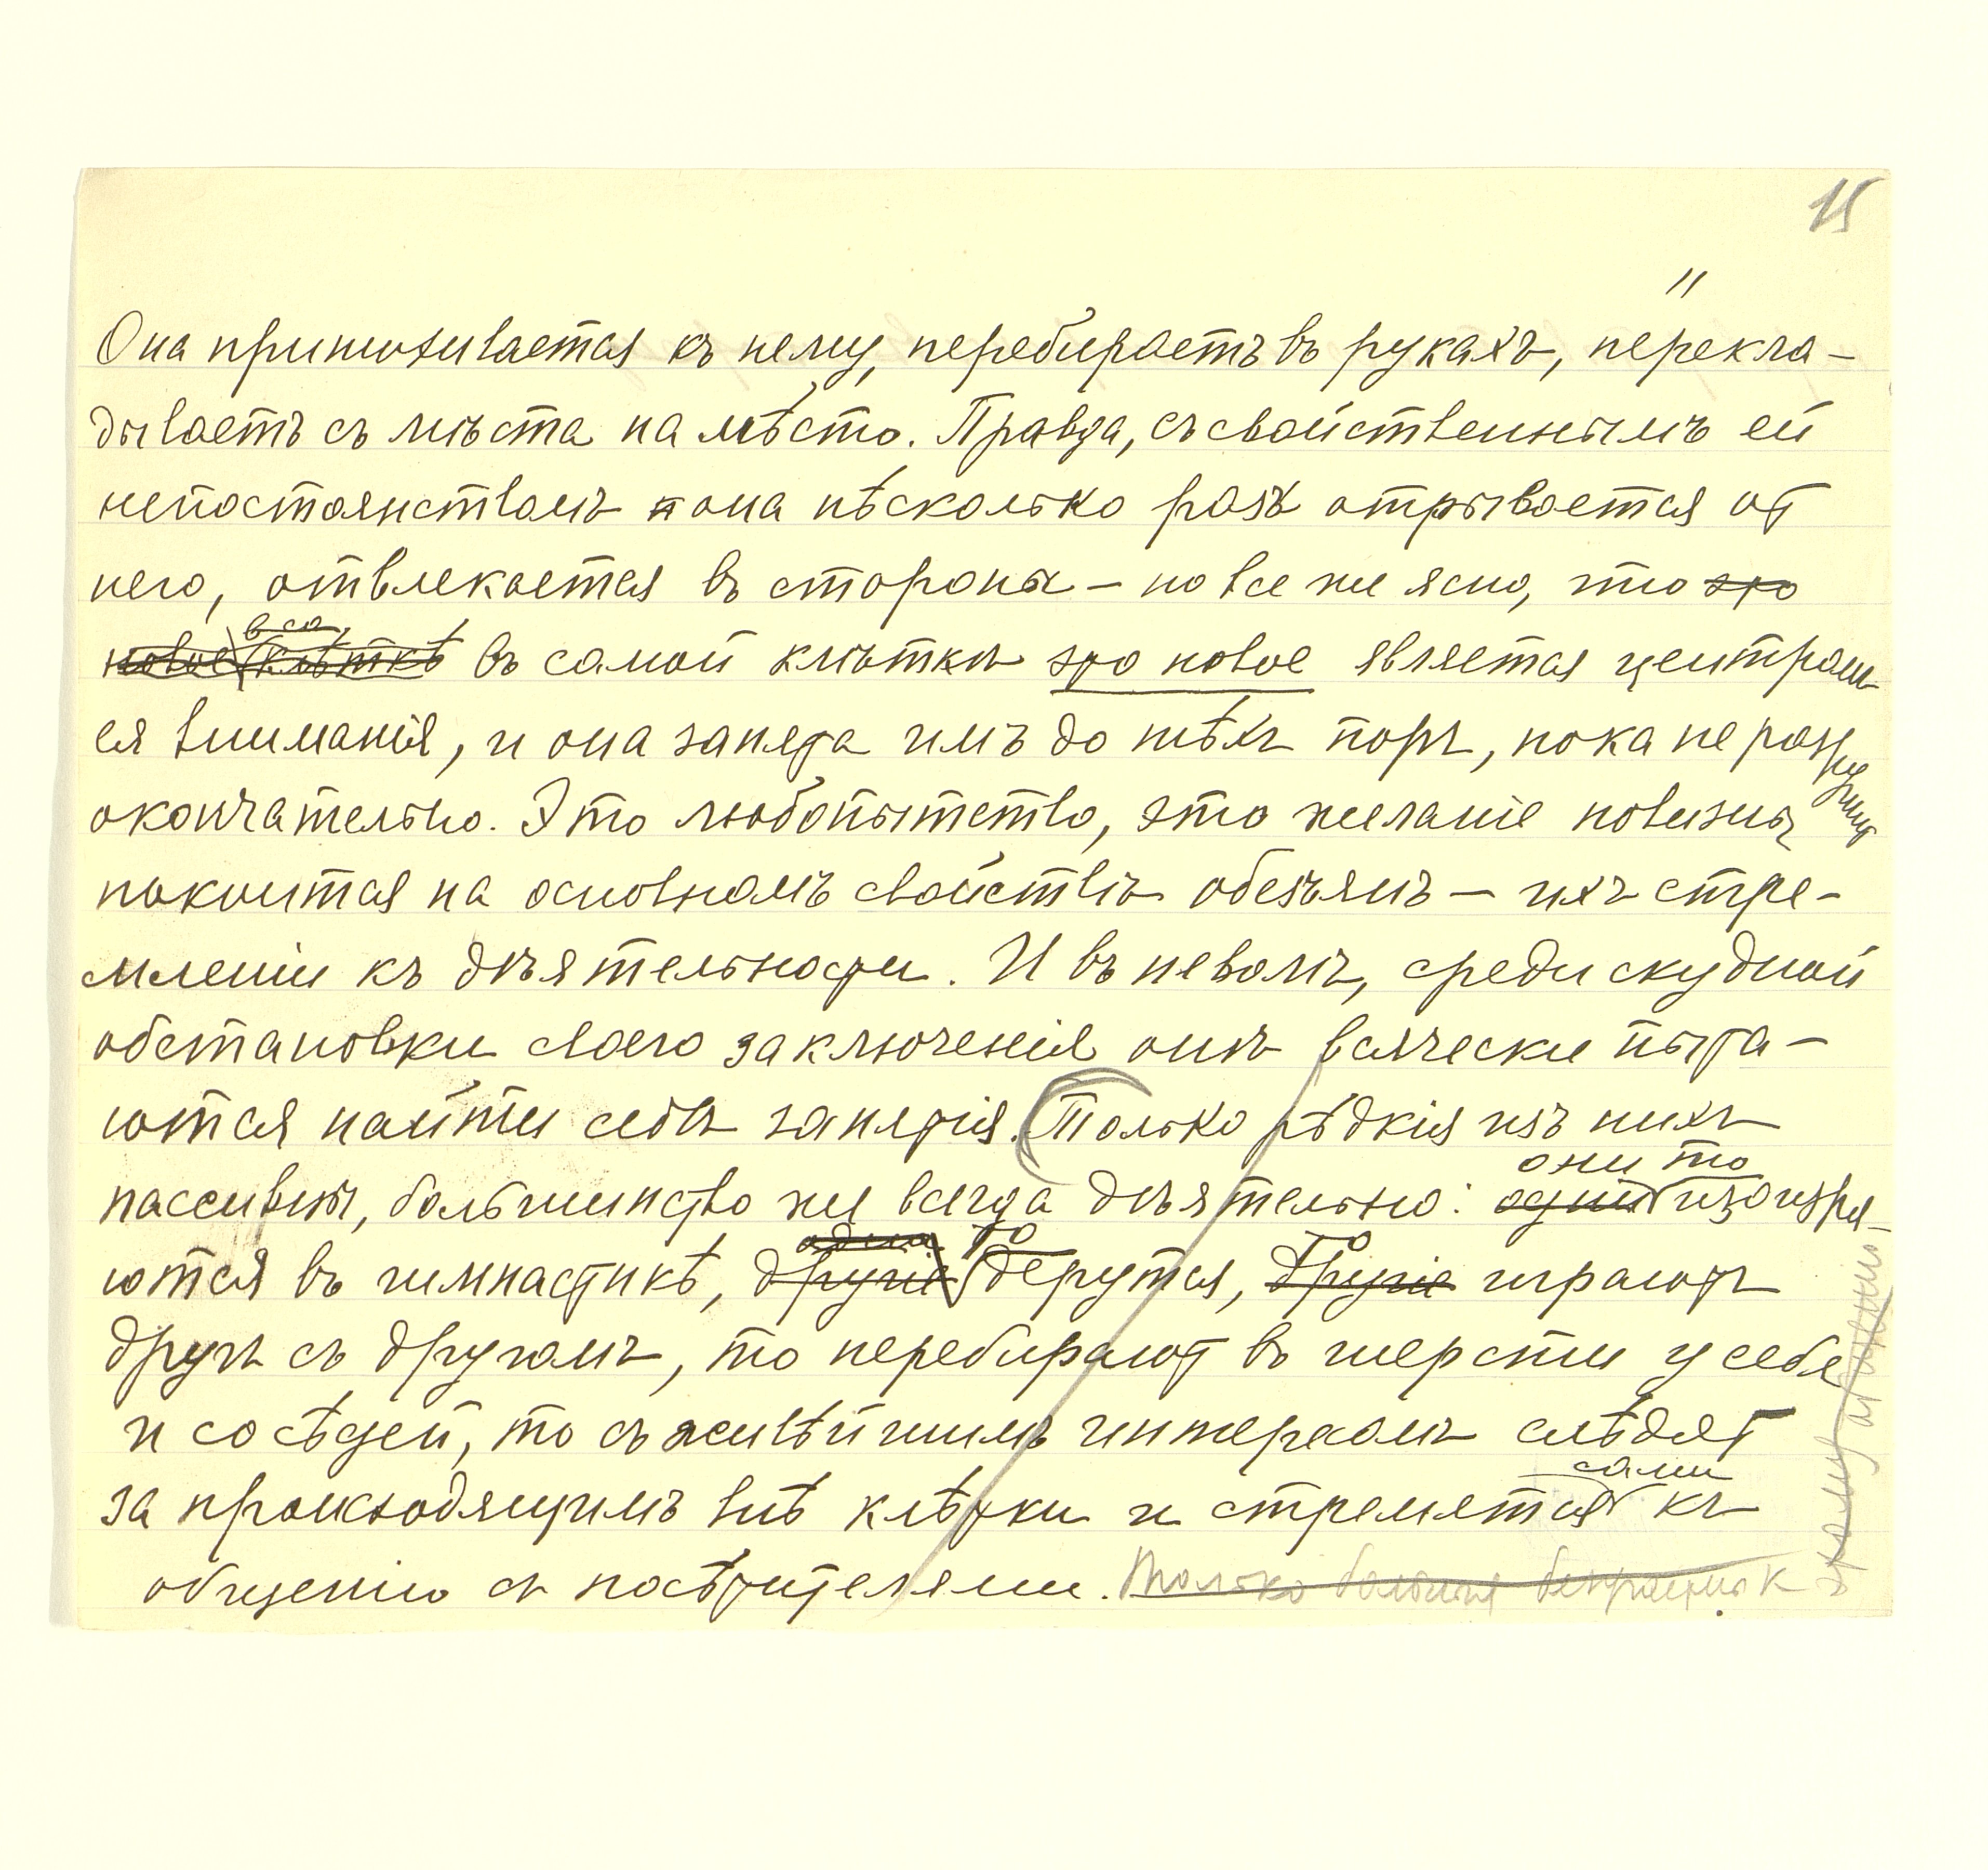 15
11
Она принюхивается къ нему, перебираетъ въ рукахъ, перекла-
дываетъ съ мѣста на мѣсто. Правда, съ свойственнымъ ей
непостоянствомъ она нѣсколько разъ отрывается от
него, отвлекается въ стороны – но все же ясно, что это
въ са
новое клѣткѣ въ самой клѣткѣ это новое является центромъ
ея вниманія, и она занята имъ до тѣхъ поръ, пока не разрушит
окончательно. Это любопытство, это желаніе новизны
покоится на основномъ свойствѣ обезьянъ – ихъ стре-
мленіи къ дѣятельности. И въ неволѣ, среди скудной
обстановки своего заключенія онѣ всячески пыта-
ются найти себѣ занятія. (Только рѣдкія изъ нихъ
они то
пассивны, большинство же всегда дѣятельно: одни изощря-
одни то то
ются въ гимнастикѣ, другіе дерутся, другіе играютъ
другъ съ другомъ, то перебирают въ шерсти у себя
и сосѣдей, то съ живѣйшимъ интересомъ слѣдят
сами
за происходящимъ внѣ клѣтки и стремятся къ
общенію съ посѣтителями. Только больныя безучастны к